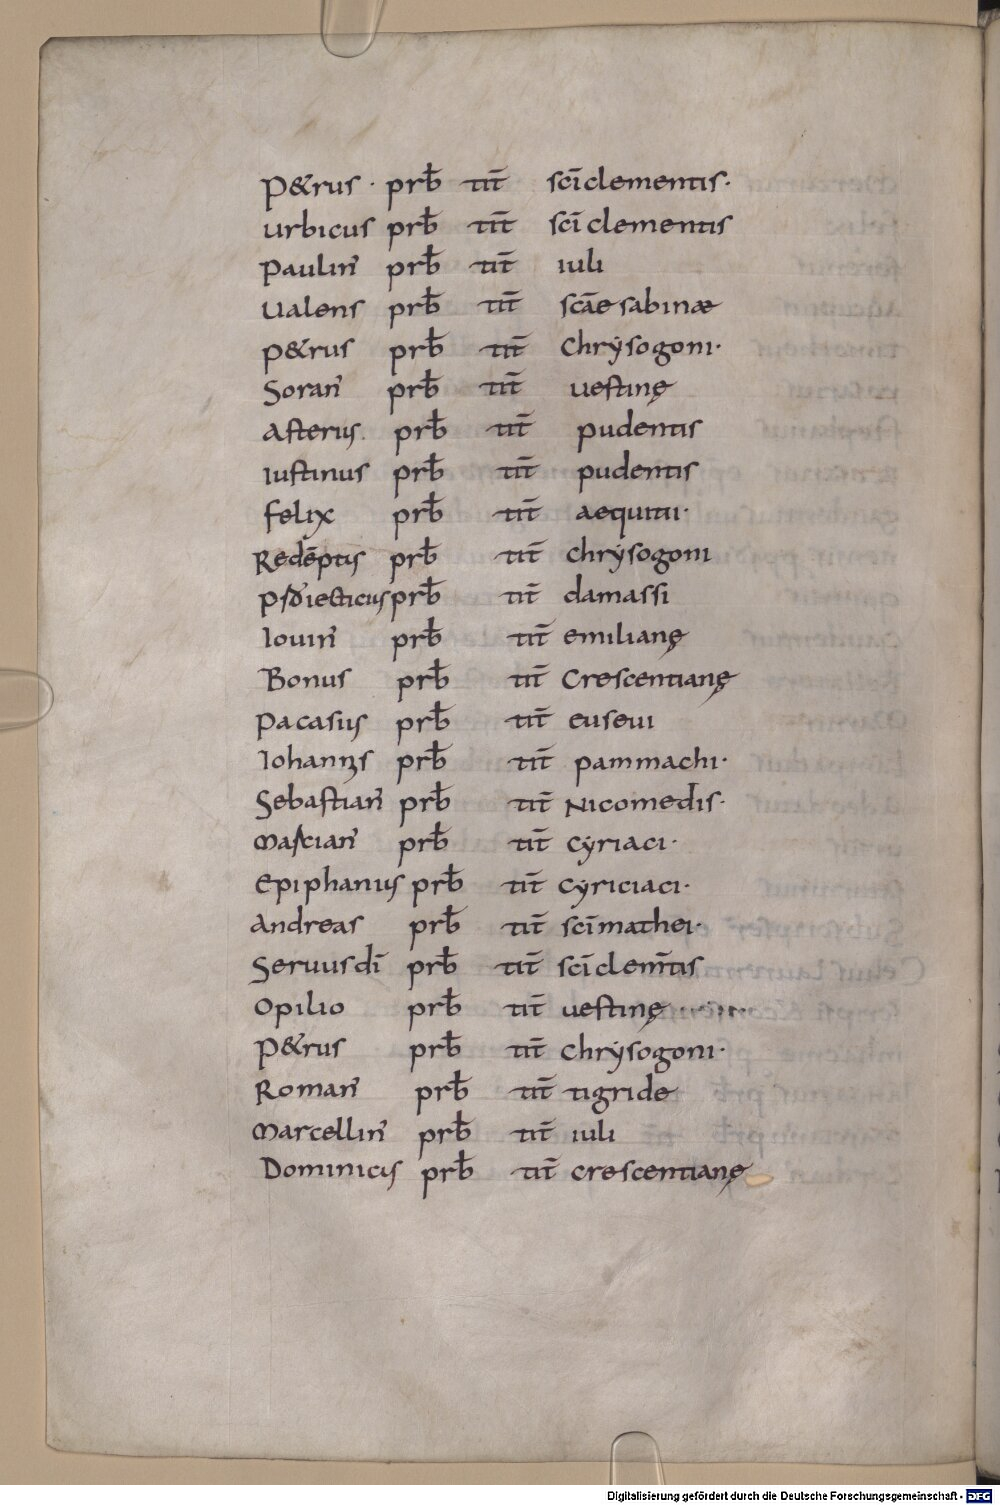 P&rus · prb̄ tit̄ sc̄i clementis·
urbicus prb̄ tit̄ sc̄i clementis
Paulin̄ prb̄ tit̄ iuli
Ualens prb̄ tit̄ sc̄ae sabinæ
p&rus prb̄ tit̄ Chrẏsogoni·
Soran̄ prb̄ tit̄ uestinę
Asterius prb̄ tit̄ pudentis
iustinus prb̄ tit̄ pudentis
felix prb̄ tit̄ aequitii·
Redēptus prb̄ tit̄ chrẏsogoni
prb̄ tit̄ damassi
Iouin̄ prb̄ tit̄ emilianę
Bonus prb̄ tit̄ Crescentianę
pacasius prb̄ tit̄ euseui
Iohannis prb̄ tit̄ pammachi·
Sebastian̄ prb̄ tit̄ Nicomedis·
prb̄ tit̄ cẏriaci·
Epiphanius prb̄ tit̄ cẏriciaci·
Andreas prb̄ tit̄ sc̄i mathei·
Seruusdī prb̄ tit̄ sc̄i clem̄tis
Opilio prb̄ tit̄ uestinę
P&rus prb̄ tit̄ chrẏsogoni·
Roman̄ prb̄ tit̄ tigride
Marcellin̄ prb̄ tit̄ iuli
Dominicus prb̄ tit̄ crescentianę
Digitalisierung gefördert durch die Deutsche Forschungsgemeinschaft - DFG